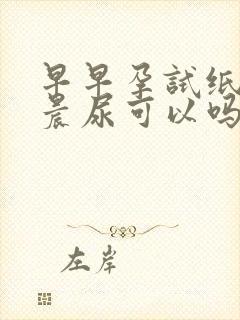 早早孕試纸
晨尿可以吗
左岸